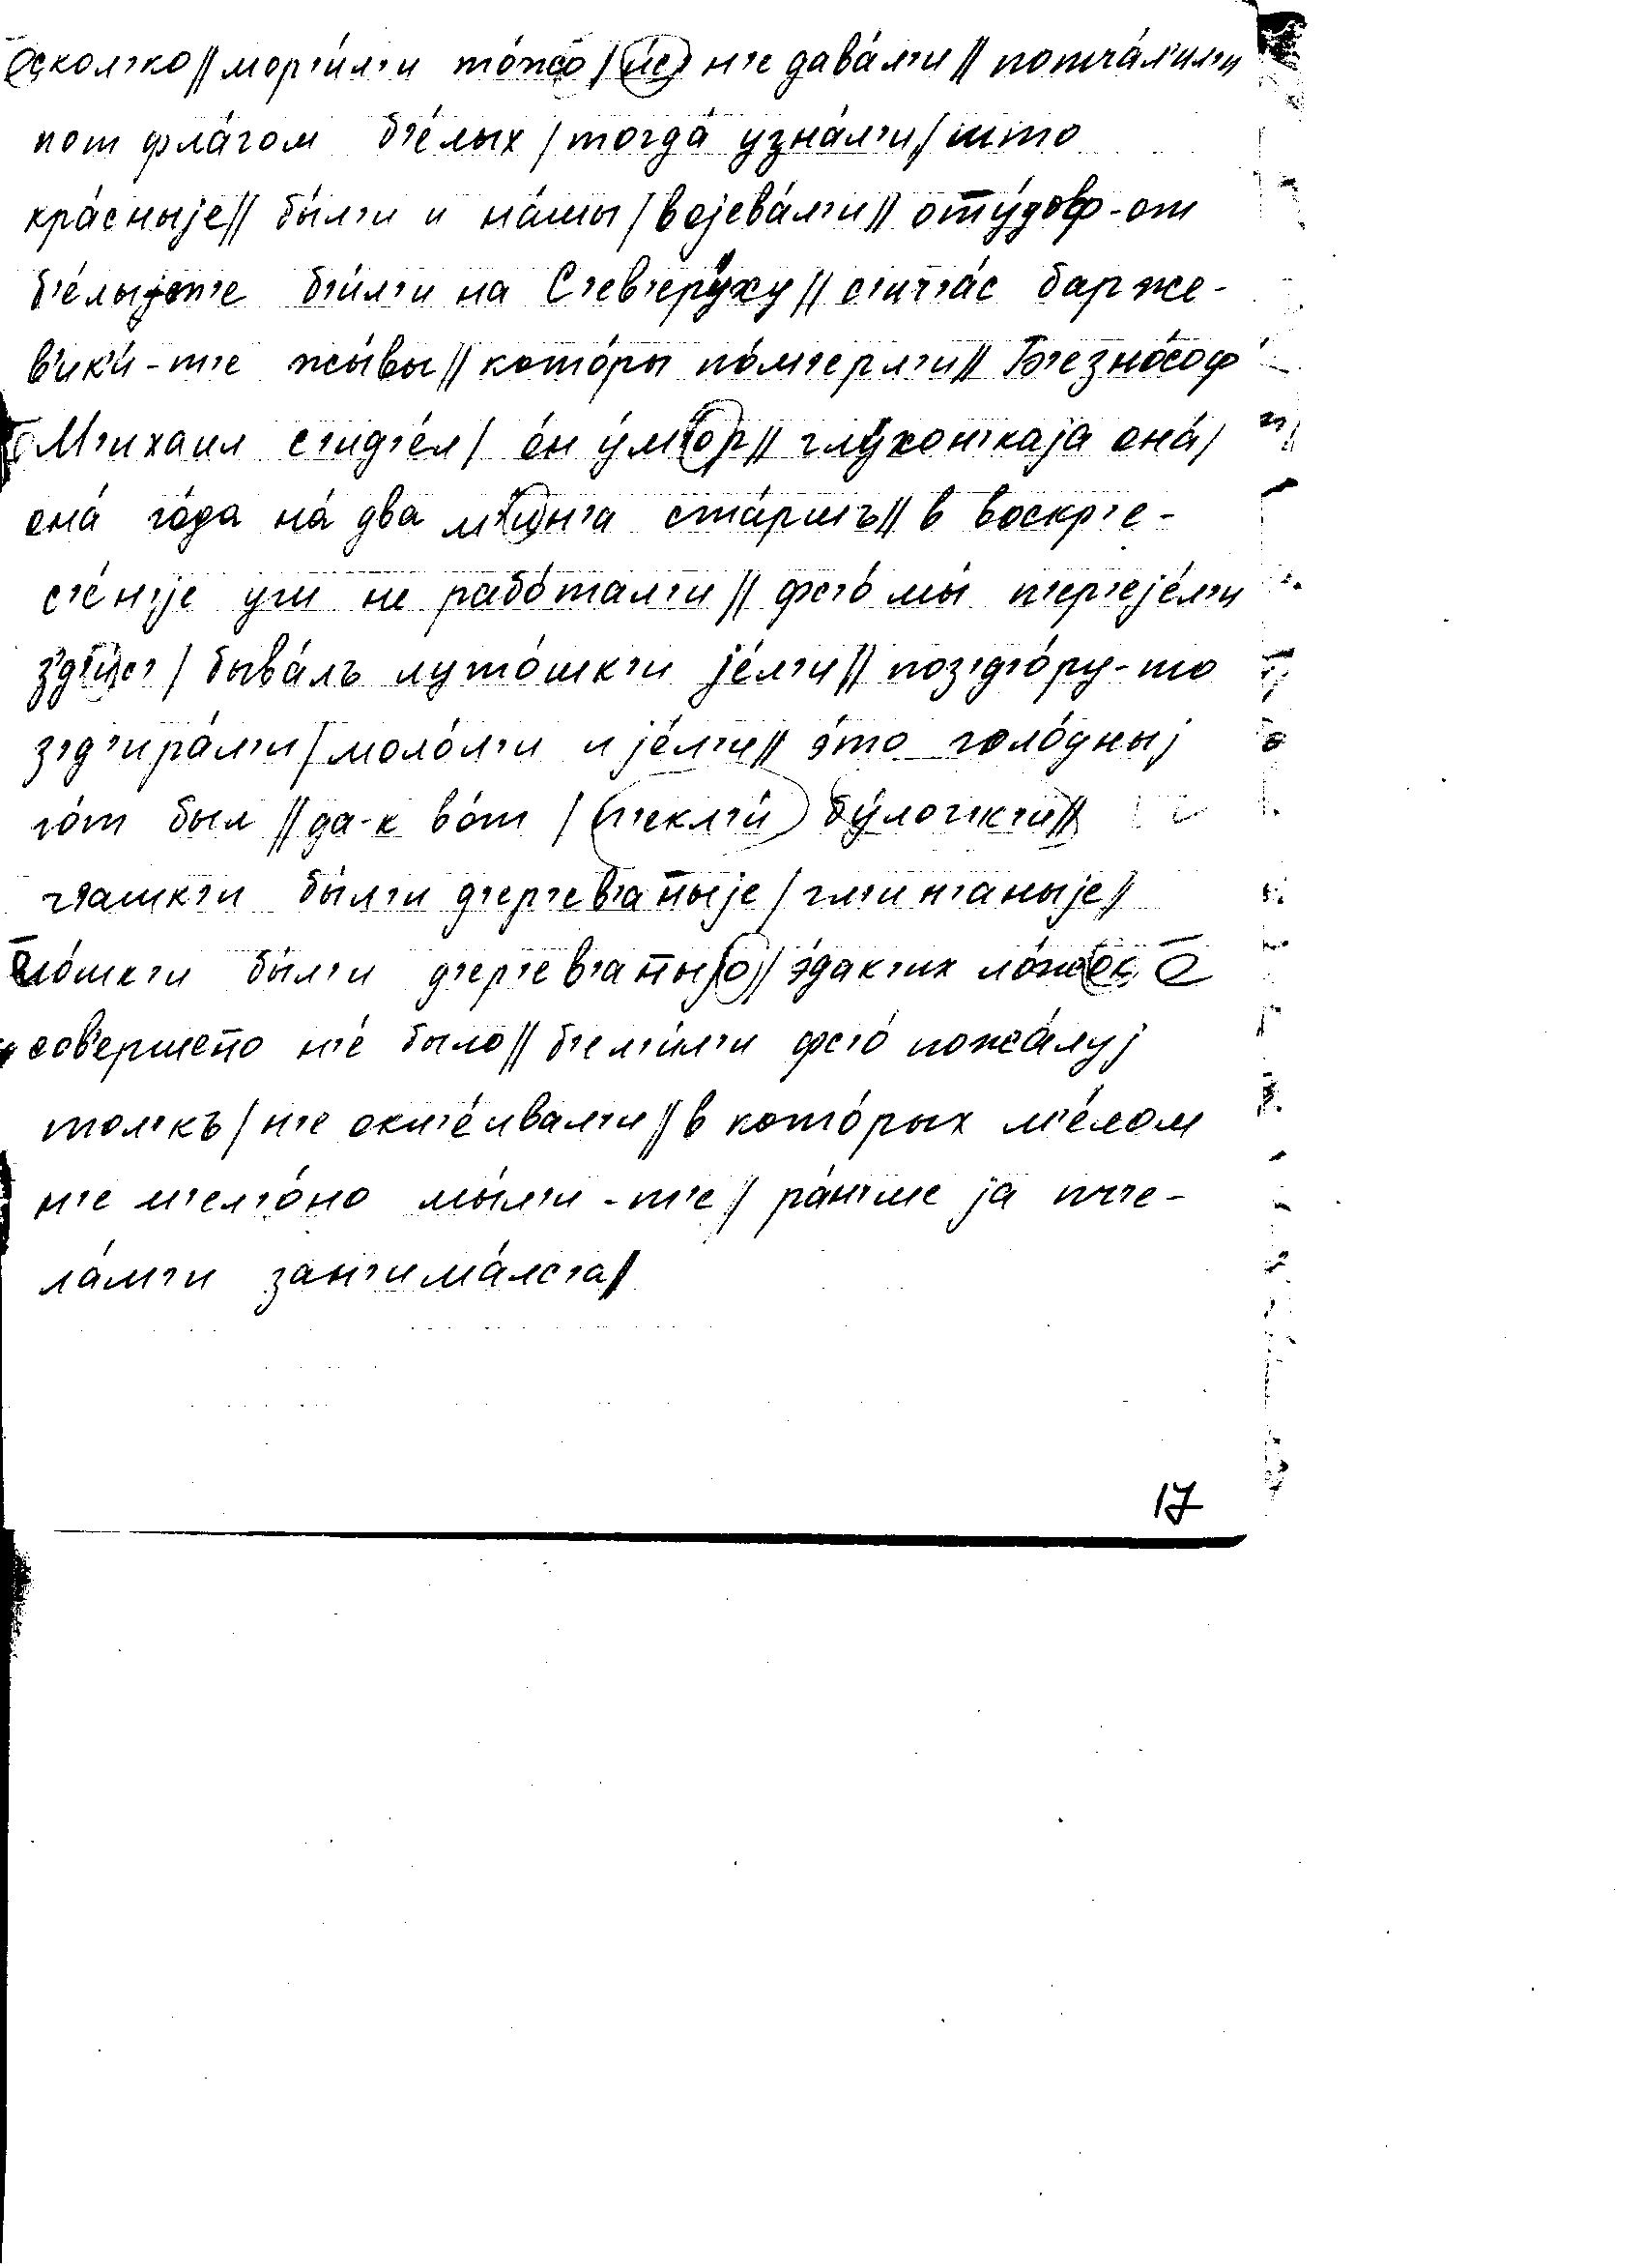 скол'ко // мор'и́л'и то́жо / йе́с' н'е дава́л'и // потча́л'ил'и
пот фла́гом б'е́лых / тогда́ узна́л'и / што
кра́сныjе // бы́л'и и на́шы / воjева́л'и // оту́довф-от
б'е́лыjе-т'е б'и́л'и на С'ев'еру́ху // с'ич'а́с барже-
в'ик'и́-т'е жы́вы // кото́ры по́м'ерл'и // Б'езно́соф
М'ихаил с'ид'е́л / о́н у́м'ор // глу́хон'каjа она́ /
она́ го́да на́ два м'и́н'а ста́ршъ // в воскр'е-
с'е́н'jе уш не рабо́тал'и // фс'о́ мы́ п'ер'еjе́л'и
з'д'ис' / быва́лъ луто́шк'и jе́л'и // поз'д'о́ру-то
з'д'ира́л'и / моло́л'и и jе́л'и // э́то голо́дныj
го́т был // да-к во́т / п'екл'и́ бу́лоч'к'и //
ч'ашк'и бы́л'и д'ер'ев'а̄ныjе / гл'ин'аныjе //
ло́шк'и бы́л'и д'ер'ев'а̄ныjо // э́дак'их ло́жок
сов'ершен̄о н'е́ было // б'ел'и́л'и фс'о́ пожа́луj
тол'къ / н'е окл'е́ивал'и // в кото́рых м'е́лом
н'е м'ел'о́но мы́л'и-т'е / ра́н'ше jа пч'е-
ла́м'и зан'има́лс'а //
17